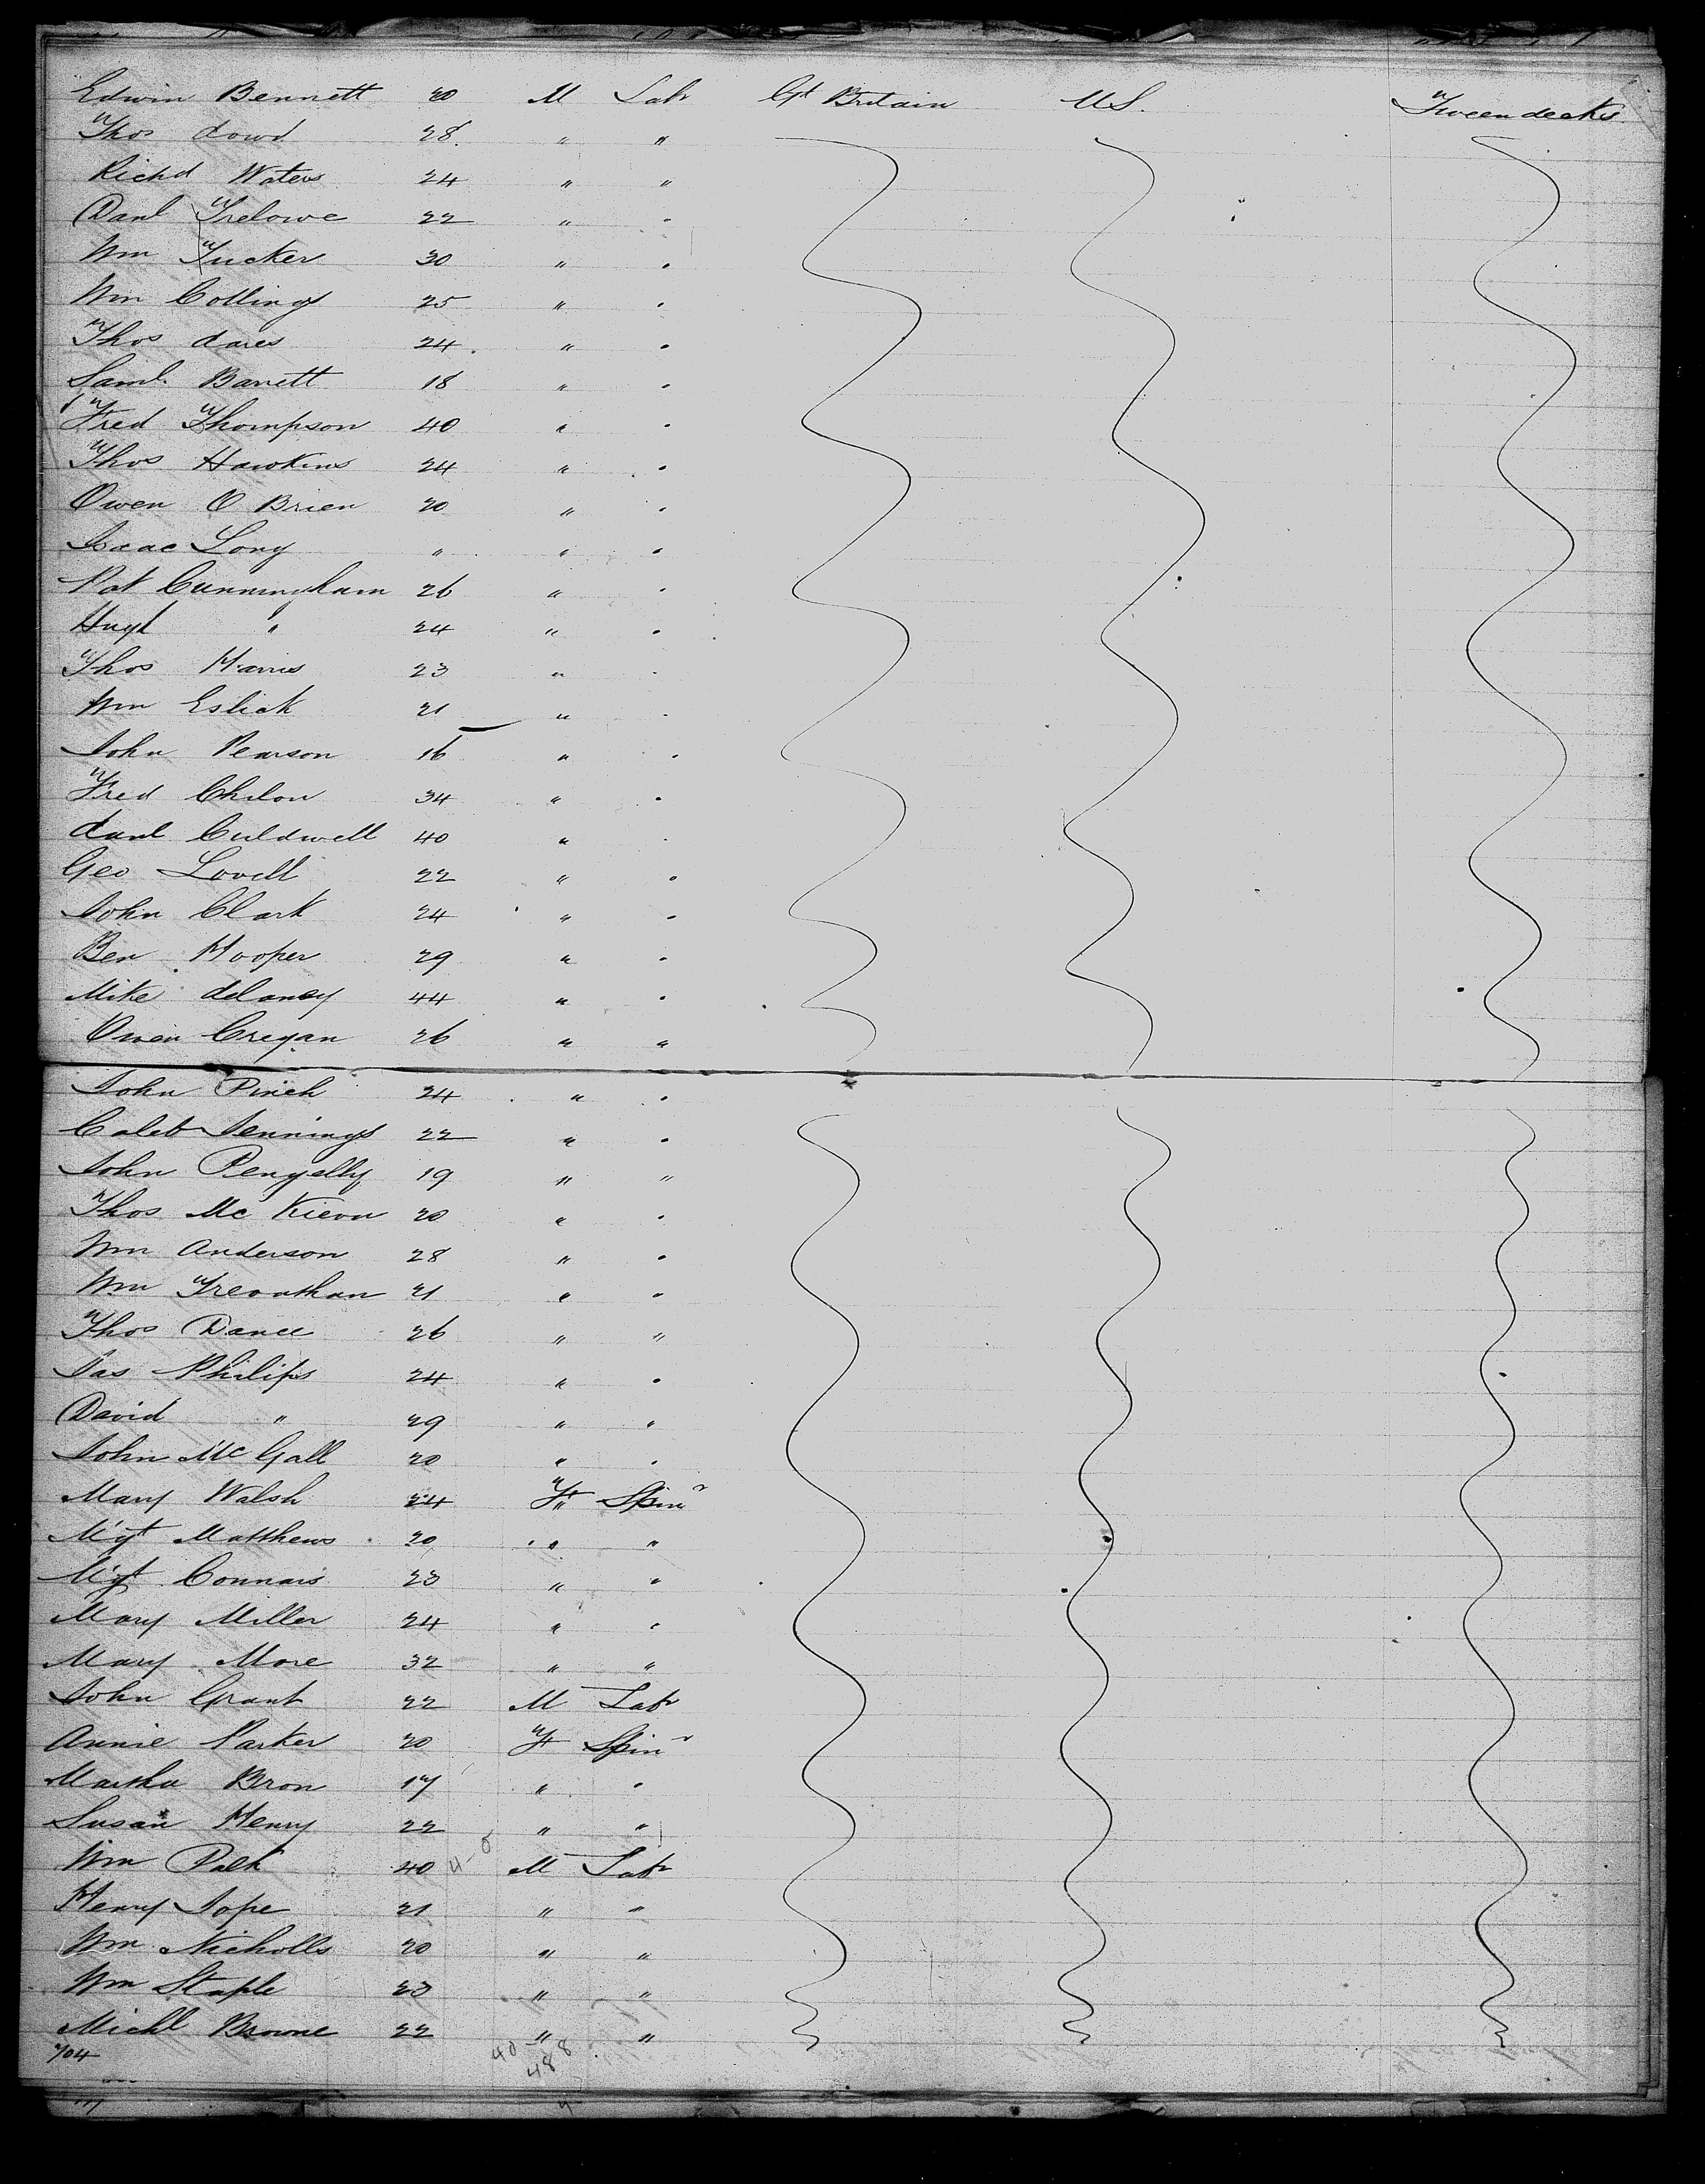 Edwin Bennett 20 M Labr Gt Britain U.S. Tween decks
Thos dowd 28 " "
Richd Waters 24 " "
Danl Trelowe 22 " "
Wm Tucker 30 " "
Wm Collings 25 " "
Thos dares 24 " "
Saml. Barrett 18 " "
Fred Thompson 40 " "
Thos Hawkins 24 " "
Owen O Brien 20 " "
Isaac Long " " "
Pat Cunningham 26 " "
Hugh " 24 " "
Thos Harris 23 " "
Wm Eslick 21 " "
John Pearson 16 " "
Fred Chilon 34 " "
danl Culdwell 40 " "
Geo Lovell 22 " "
John Clark 24 " "
Ben Hooper 29 " "
Mike delaney 44 " "
Owen Cregan 26 " "
John Pinch 24 " "
Caleb Jennings 22 " "
John Pengelly 19 " "
Thos Mc Kieon 20 " "
Wm Anderson 28 " "
Wm Trevathan 21 " "
Thos Dance 26 " "
Jas Philips 24 " "
David " 29 " "
John Mc Gall 20 " "
Mary Walsh 24 F Spinr
Mgt Matthews 20 " "
Mgt Connors 23 " "
Mary Miller 24 " "
Mary More 32 " "
John Grant 22 M Labr
Annie Parker 20 F Spinr
Martha Bron 17 " "
Susan Henry 22 " "
Wm Palk 40 M Labr
Henry Jope 21 " "
Wm Nicholls 20 " "
Wm Staple 23 " "
Michl Browne 22 " "
704 40 - 8
488